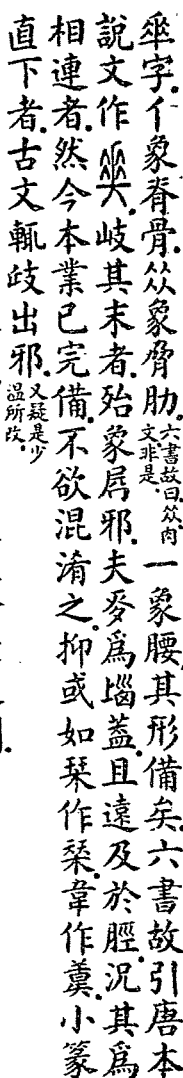 字。亻象脊骨。从象脅肋。六書故曰。肉文非是。一象腰。其形備矣。六書故引唐本
說文作。岐其末者。殆象邪。夫為蓋。且遠及於脛。況其為
相連者。然今本業已完備。不欲混淆之。抑或如琹作。韋作。小篆
直下者。古文輒歧出邪。又疑是少温所改。